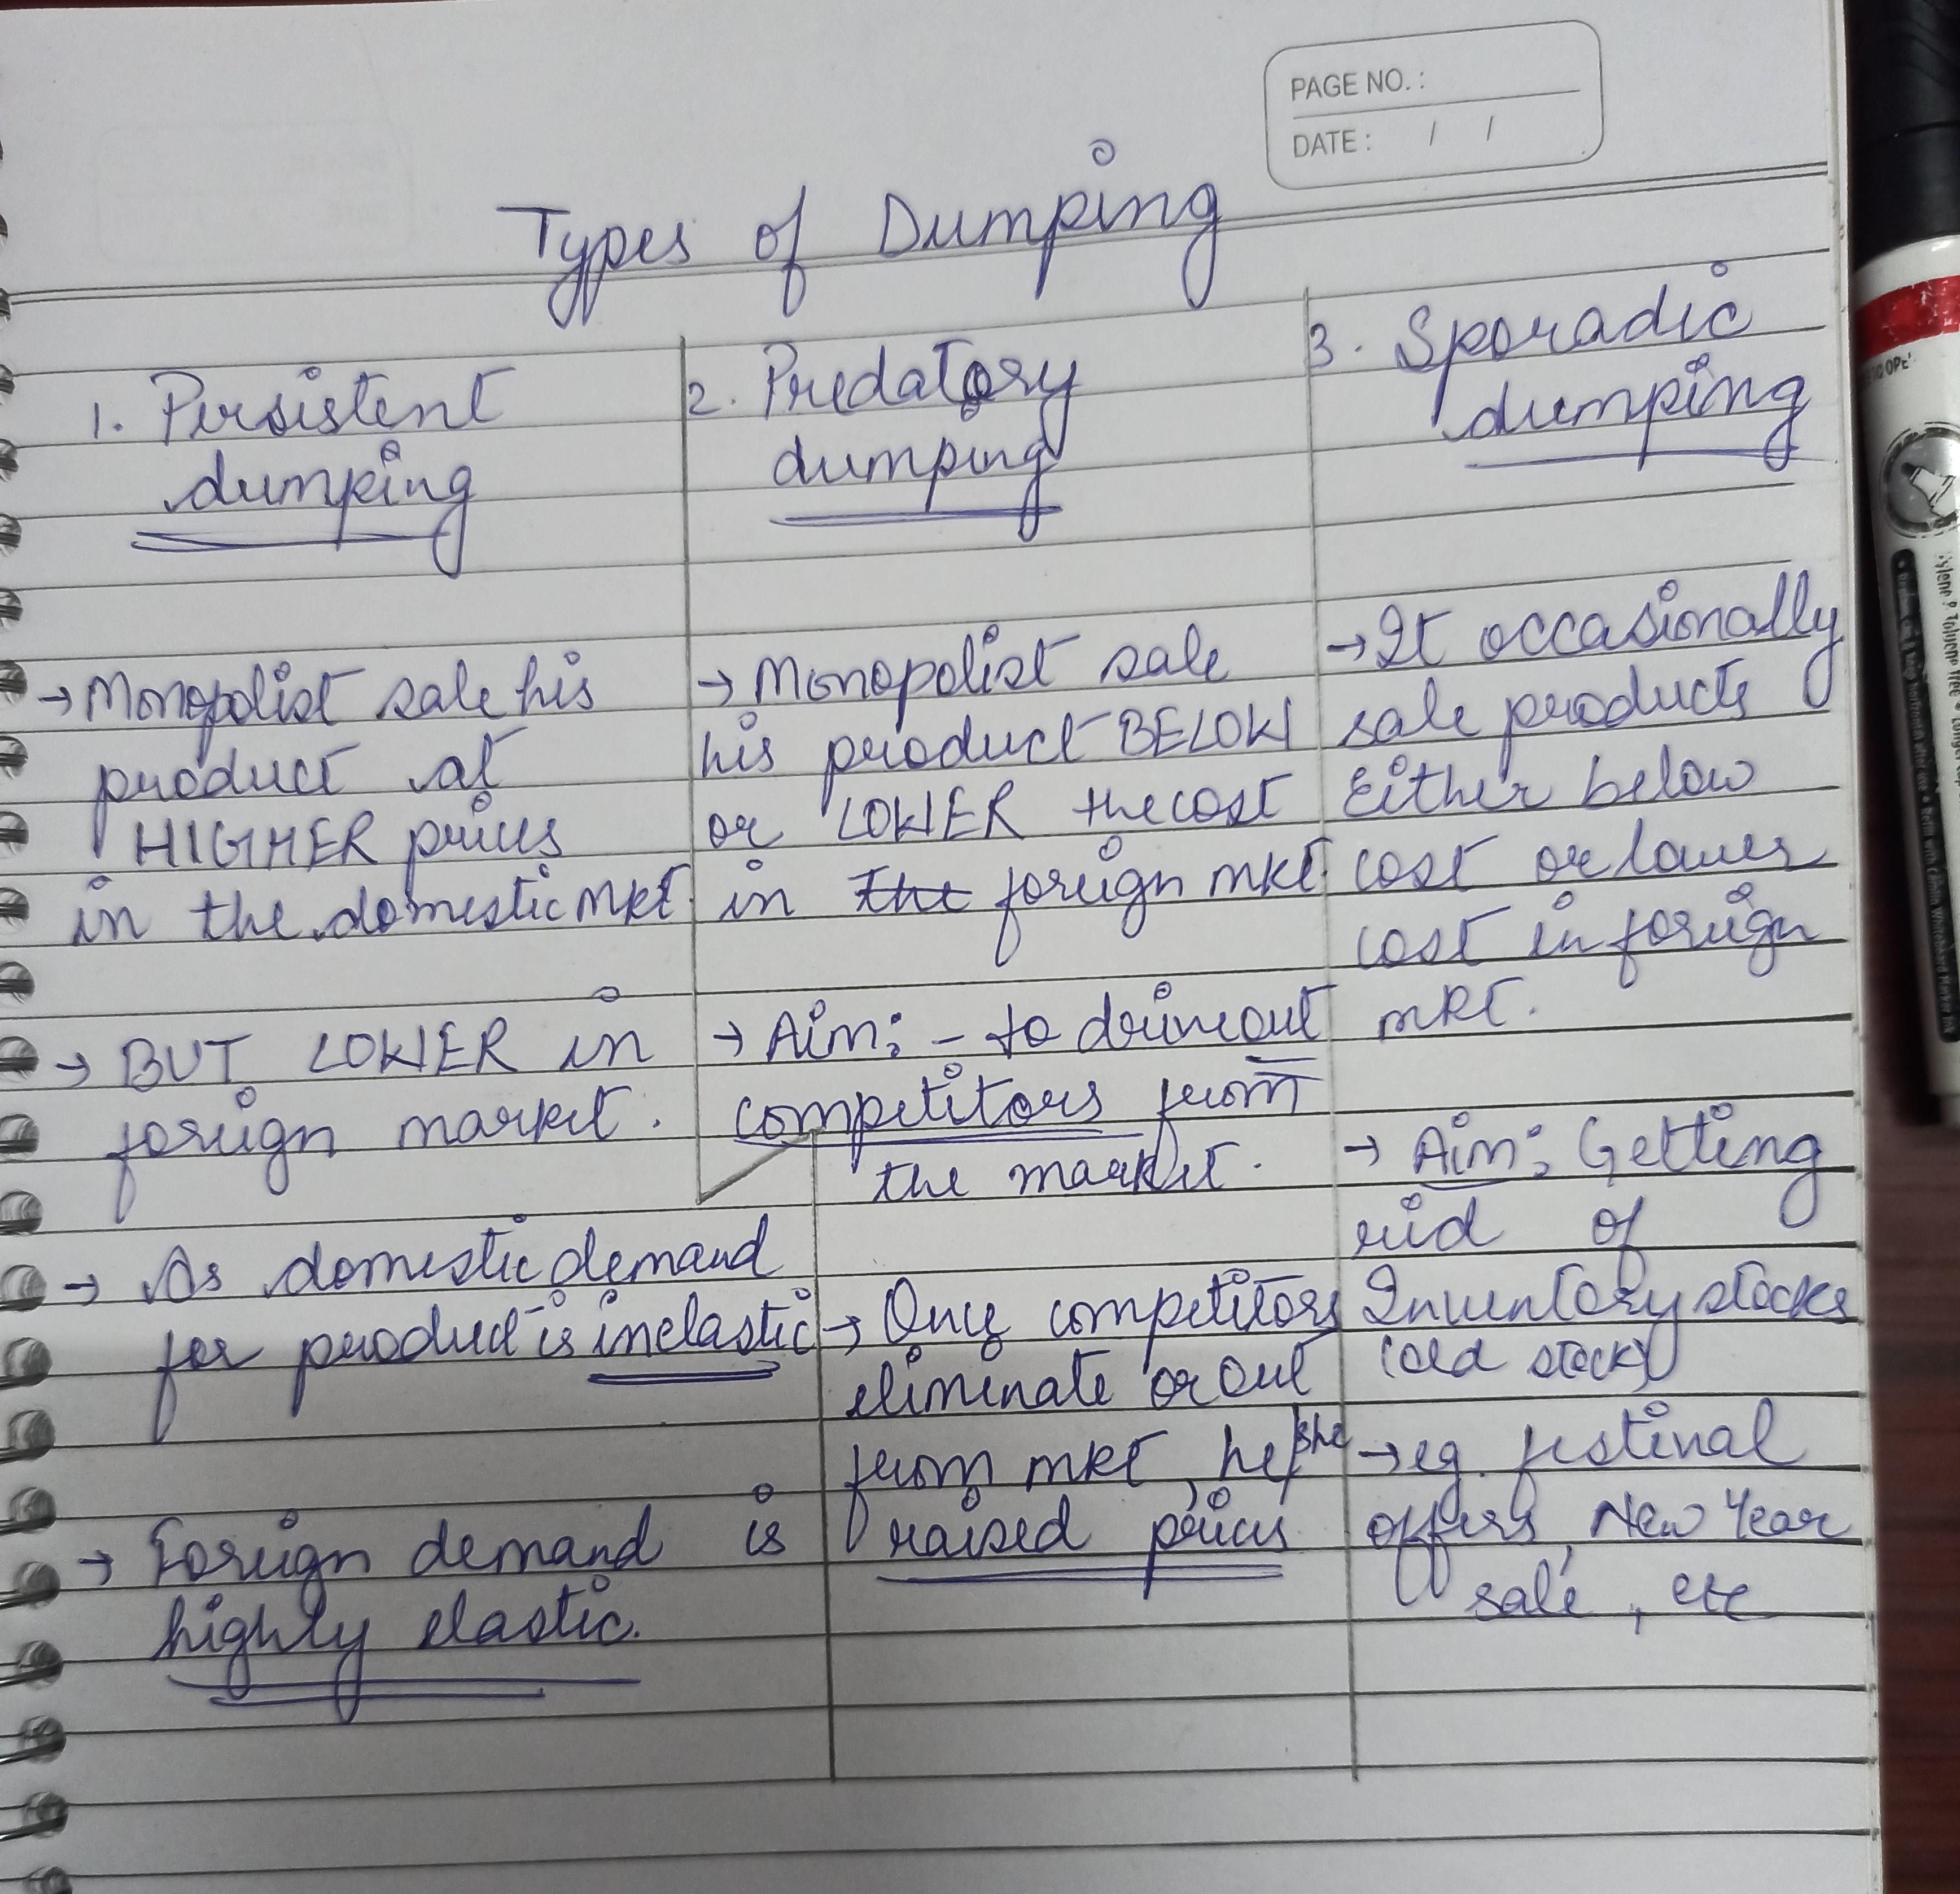 PAGE NO.:
DATE: / /
Types of Dumping
1. Persistent
dumping
→ Monopolist sale his
product at
HIGHER prices
in the domestic mkt.
→ BUT LOWER in
foreign market.
→ As domestic demand
for product is inelastic
→ Foreign demand is
highly elastic.
2. Predatory
dumping
→ Monopolist sale
his product BELOW
or LOWER the cost
in the foreign mkt.
→ Aim: - to drive out
competitors from
the market.
→ Once competitors
eliminate or out
from mkt, he/she
raised prices
3. Sporadic
dumping
→ It occasionally
sale products
Either below
cost or lower
cost in foreign
mkt.
→ Aim: Getting
rid of
Inventory stocks
(old stock)
→ eg. festival
offers, New Year
sale, etc